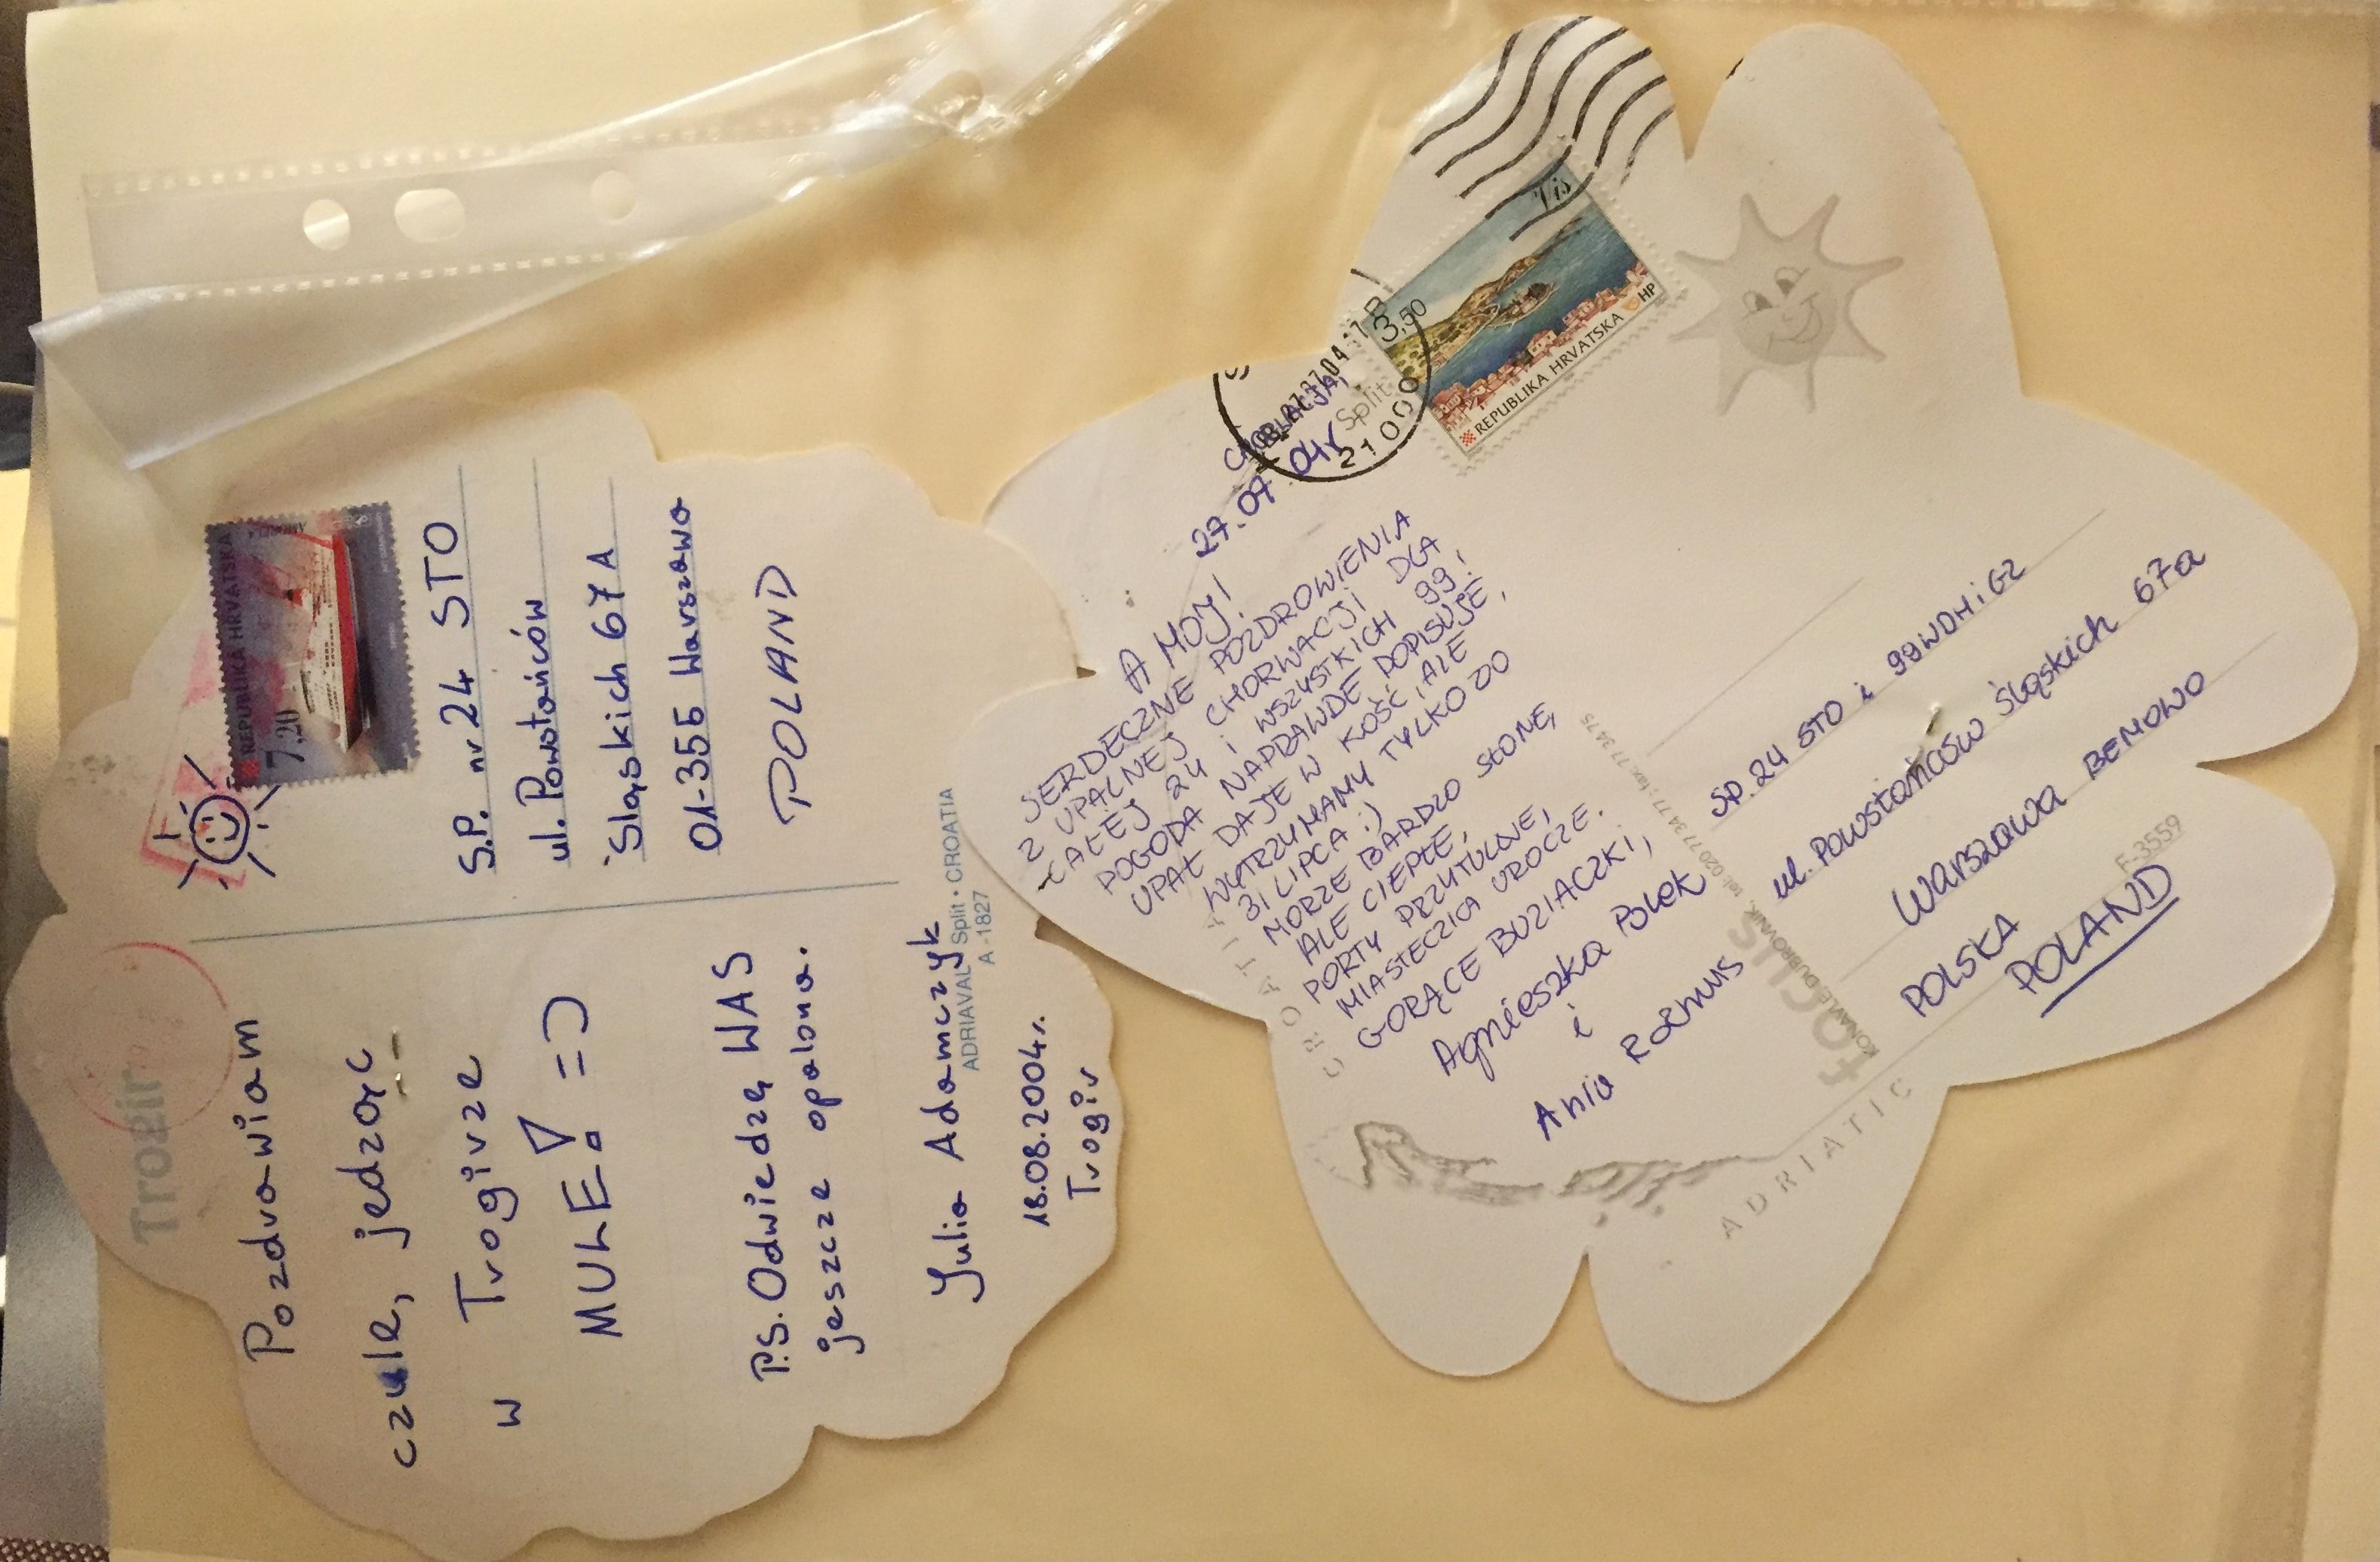 Trogir
Pozdrawiam
czule, jedząc
w Trogirze
MULE! =)
P.S. Odwiedzę WAS
jeszcze opalona.
Julia Adamczyk
18.08.2004r.
Trogir
ADRIAVAL Split • CROATIA
A-1827
REPUBLIKA HRVATSKA
7.20
S.P. nr 24 STO
ul. Powstańców
Śląskich 67A
01-355 Warszawa
POLAND
CHORWACJA,
27.07.04r
AHOJ!
SERDECZNE POZDROWIENIA
Z UPALNEJ CHORWACJI DLA
CAŁEJ 24 I WSZYSTKICH 99!
POGODA NAPRAWDĘ DOPISUJE,
UPAŁ DAJE W KOŚĆ, ALE
WYTRZYMAMY TYLKO DO
31 LIPCA :)
MORZE BARDZO SŁONE,
ALE CIEPŁE,
PORTY PRZYTULNE,
MIASTECZKA UROCZE.
GORĄCE BUZIACZKI,
Agnieszka Polek
i
Ania Roemus
CROATIA
ADRIATIC
focus
KONAVLE, DUBROVNIK, tel: 020 773 477; fax: 773 475
F-3559
27.07.04
Split
21000
3,50
Vis
REPUBLIKA HRVATSKA
HP
SP.24 STO i 99WDHiGZ
ul. Powstańców Śląskich 67a
Warszawa BEMOWO
POLSKA
POLAND